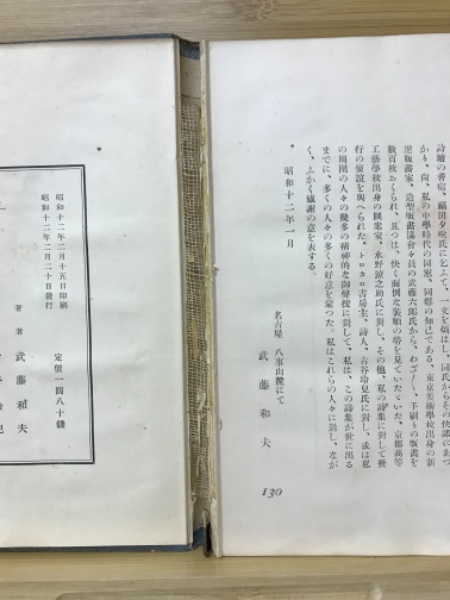 詩壇の耆宿、福田夕咲氏に乞ふて、一文を煩はし、同氏からその快諾にあづ
かり、尚、私の中學時代の同窓、同鄕の知己である、東京美術學校出身の新
進版畫家、造型版畫協會々員の武藤六郎氏から、わざ〱、手刷りの版畫を
數百枚おくられ、且つは、快く面倒な裝幀の勞を見ていたゞいた、京都高等
工藝學校出身の圖案家、水野諒之助氏に對し、その他、私の詩集に對して發
行の便宜を與へられた、トロカロ書房主、詩人、古谷玲兒氏に對し、或は私
の周圍の人々の幾多の精神的な御聲援に對して、私は、この詩集が世に出る
までに、多くの人々の多くの好意を蒙つた。私はこれらの人々に對し、なが
く、ふかく感謝の意を表する。
昭和十二年一月
名古屋 八事山麓にて
武藤和夫
130
昭和十二年二月十五日印刷
昭和十二年二月二十日發行
定價一圓八十錢
著者 武藤和夫